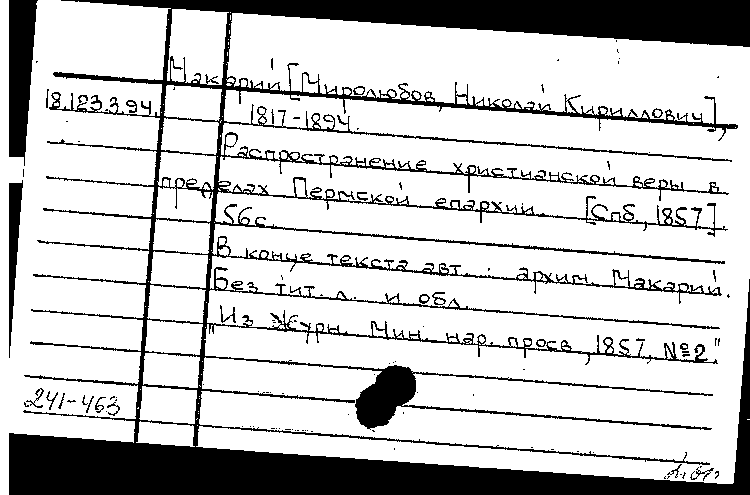 Макарий [Миролюбов, Николай Кириллович],
18.123.3.94.
1817-1894.
Распространение христианской веры в
пределах Пермской епархии. [Спб., 1857].
56с.
В конце текста авт.: архим. Макарий.
Без тит. л. и обл.
"Из Журн. Мин. нар. просв., 1857, №2."
241-463